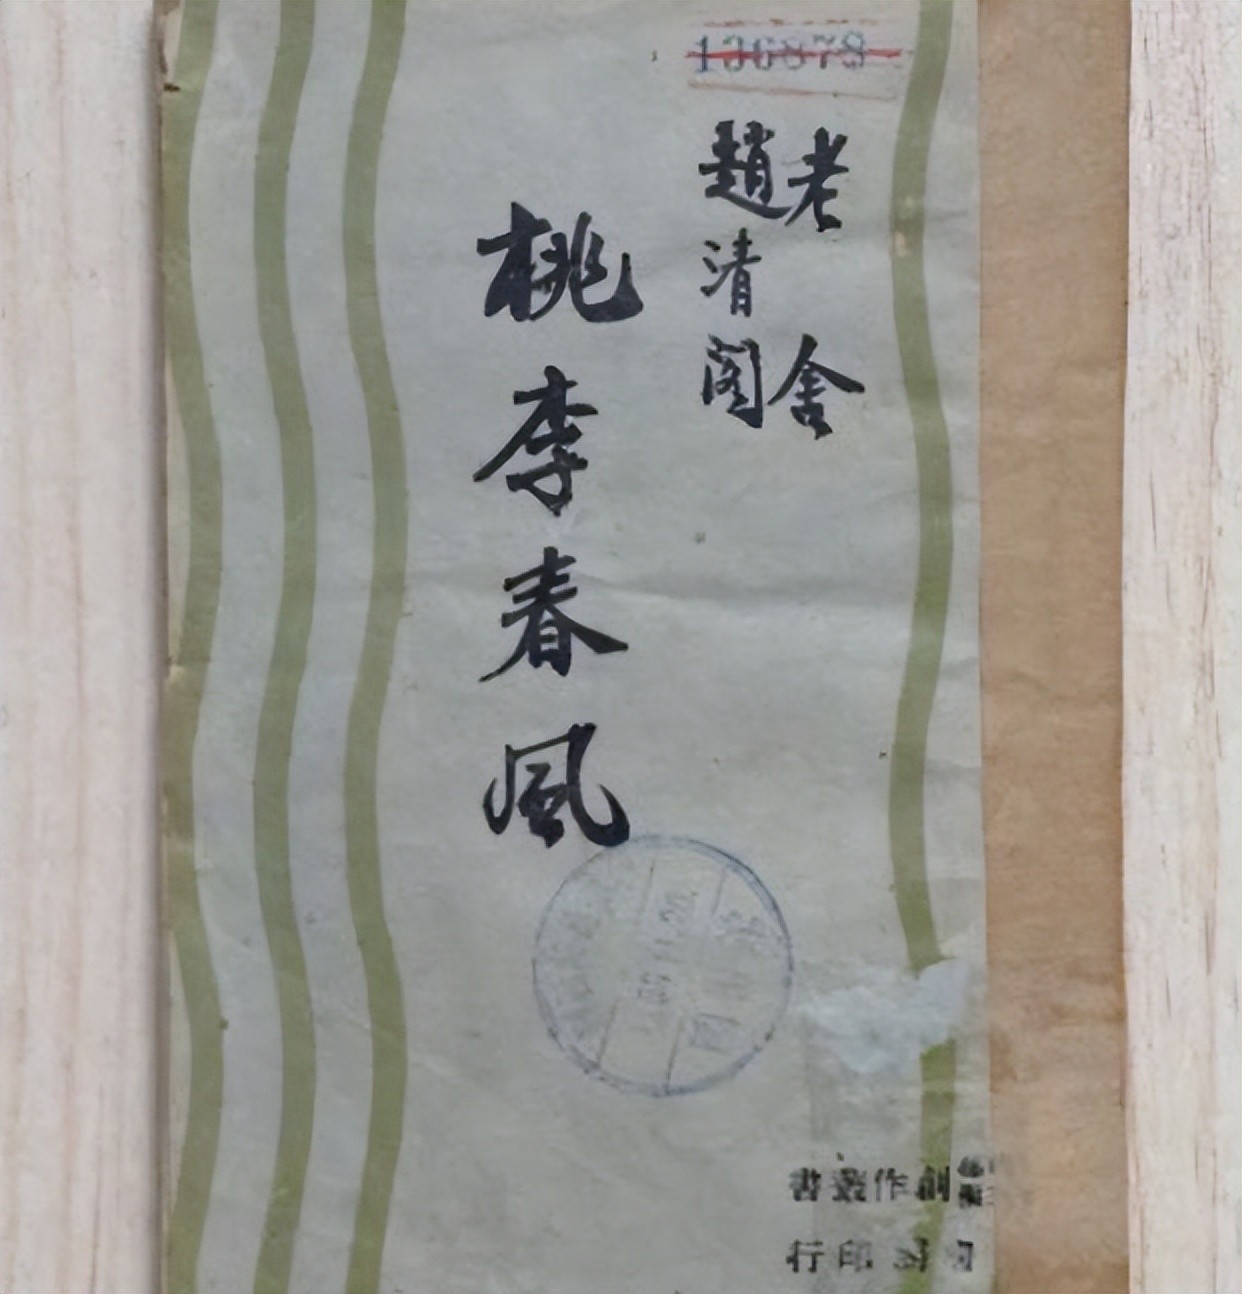 136878
老舍
趙清閣
桃李春風
創作叢書
印行